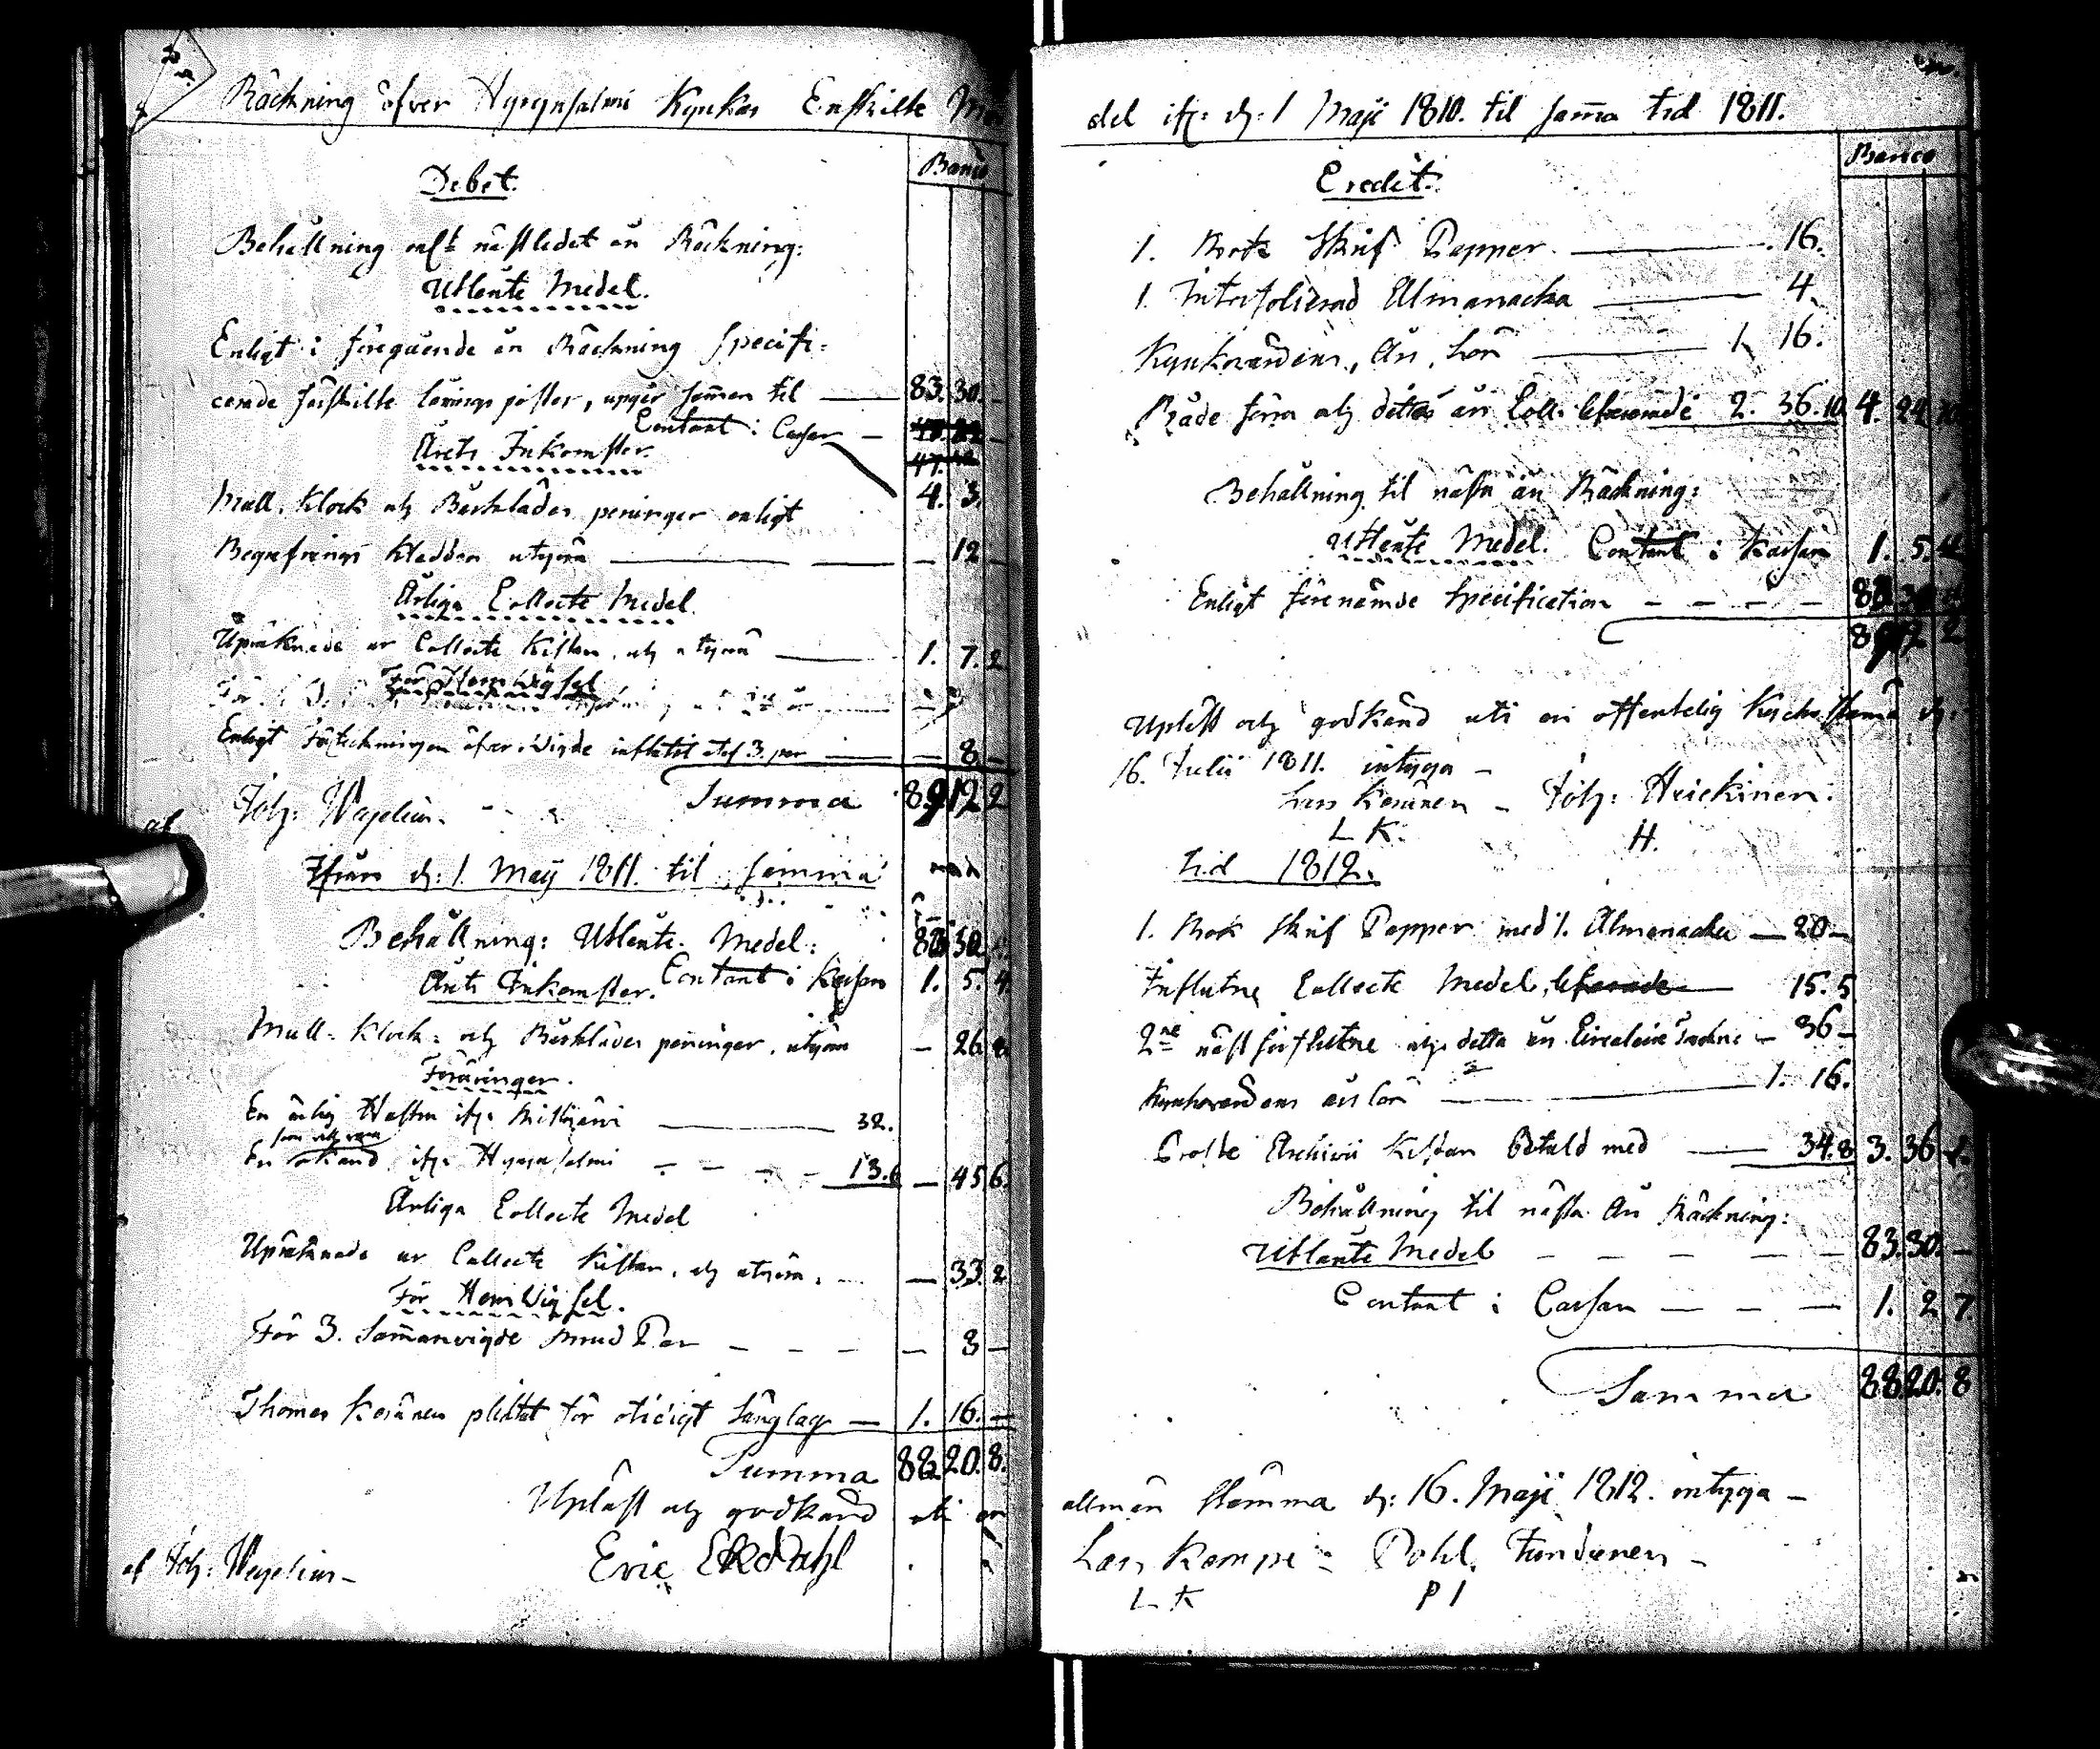 Räckning öfver Hyrynsalmi Kyrkas Enskilte
Debet.
Banco
Behållning näst ledet år Räckning:
Utlente Medel.
Enligt i föregående års Räckning specifi-
cerade särskilte lånings poster, upgår summan til — 83. 30. —
Contant i Cassan —
Årets Inkomster.
4. 3.
Mull, Klock och Bårkläder peninger enligt
Begrafnings utgöra — — 12 —
Årliga Collecte Medel.
Upräknade ur Collecte Kistan, och utgöra — 1. 7. 2
För Hemvigsel
Enligt Förtekningen öfver vigde influtit af 3. par — — 8 —
Summa 89 12 2
Joh: Wegelius.
Ifrån d: 1. Maij 1811. til samma
Behållning: Utlente Medel: 83 30
Contant i Kassan 1. 5. 4
Årets Inkomster.
Mull- Klock- och Bårkläder peninger, utgöra — 26. 8
Föräringer.
En ärlig Hustru ifr: — 32.
En okänd ifr: Hyrynsalmi — 13.6 — 45 6.
Årliga Collecte Medel
Upräknade ur Collecte Kistan, och utgöra — 33. 2
För Hemvigsel.
För 3. Sammanvigde Brud Par — — — — 8 —
Thomas Keränen pliktat för otidigt Sänglag — 1. 16. —
Summa 88. 20. 8.
Upläst och godkänd uti en
af Joh: Wegelius —
Eric Ekdahl
del ifr: d: 1 Maji 1810. til samma tid 1811.
Credit.
Banco
1. Bok Skrif Papper — 16.
1. Interfolierad Almanacka — 4.
Kyrkovärdens, Års Lön — 1. 16.
Både förra och detta års Coll: 2. 36. 10 4. 24. 10
Behållning til nästa års Räckning:
Utlente Medel. Contant i Kassan 1. 5. 4
Enligt förenämde Specification — — — — 83 30
89 12 2
Upläst och godkänd uti en offentelig Kyrkostämma d:
16. Julii 1811. intyga —
Lars Keränen — Joh: Heickinen.
L K. H.
tid 1812.
1. Bok Skrif Papper med 1. Almanacka — 20 —
Influtne Collecte Medel, — 15. 5
2ne näst förflutne och detta års — 36 —
Kyrkovärdens års lön — 1. 16.
Archivi Kistan betald med — 34. 8 3. 36 1.
Behållning til nästa Års Räckning:
Utlänte Medel — — — — — 83. 30. —
Contant i Cassan — — — 1. 2 7.
Summa 88 20. 8
allmän stämma d: 16. Maji 1812. intyga —
Lars Kempe — Pohl. Tundunen —
L K P I